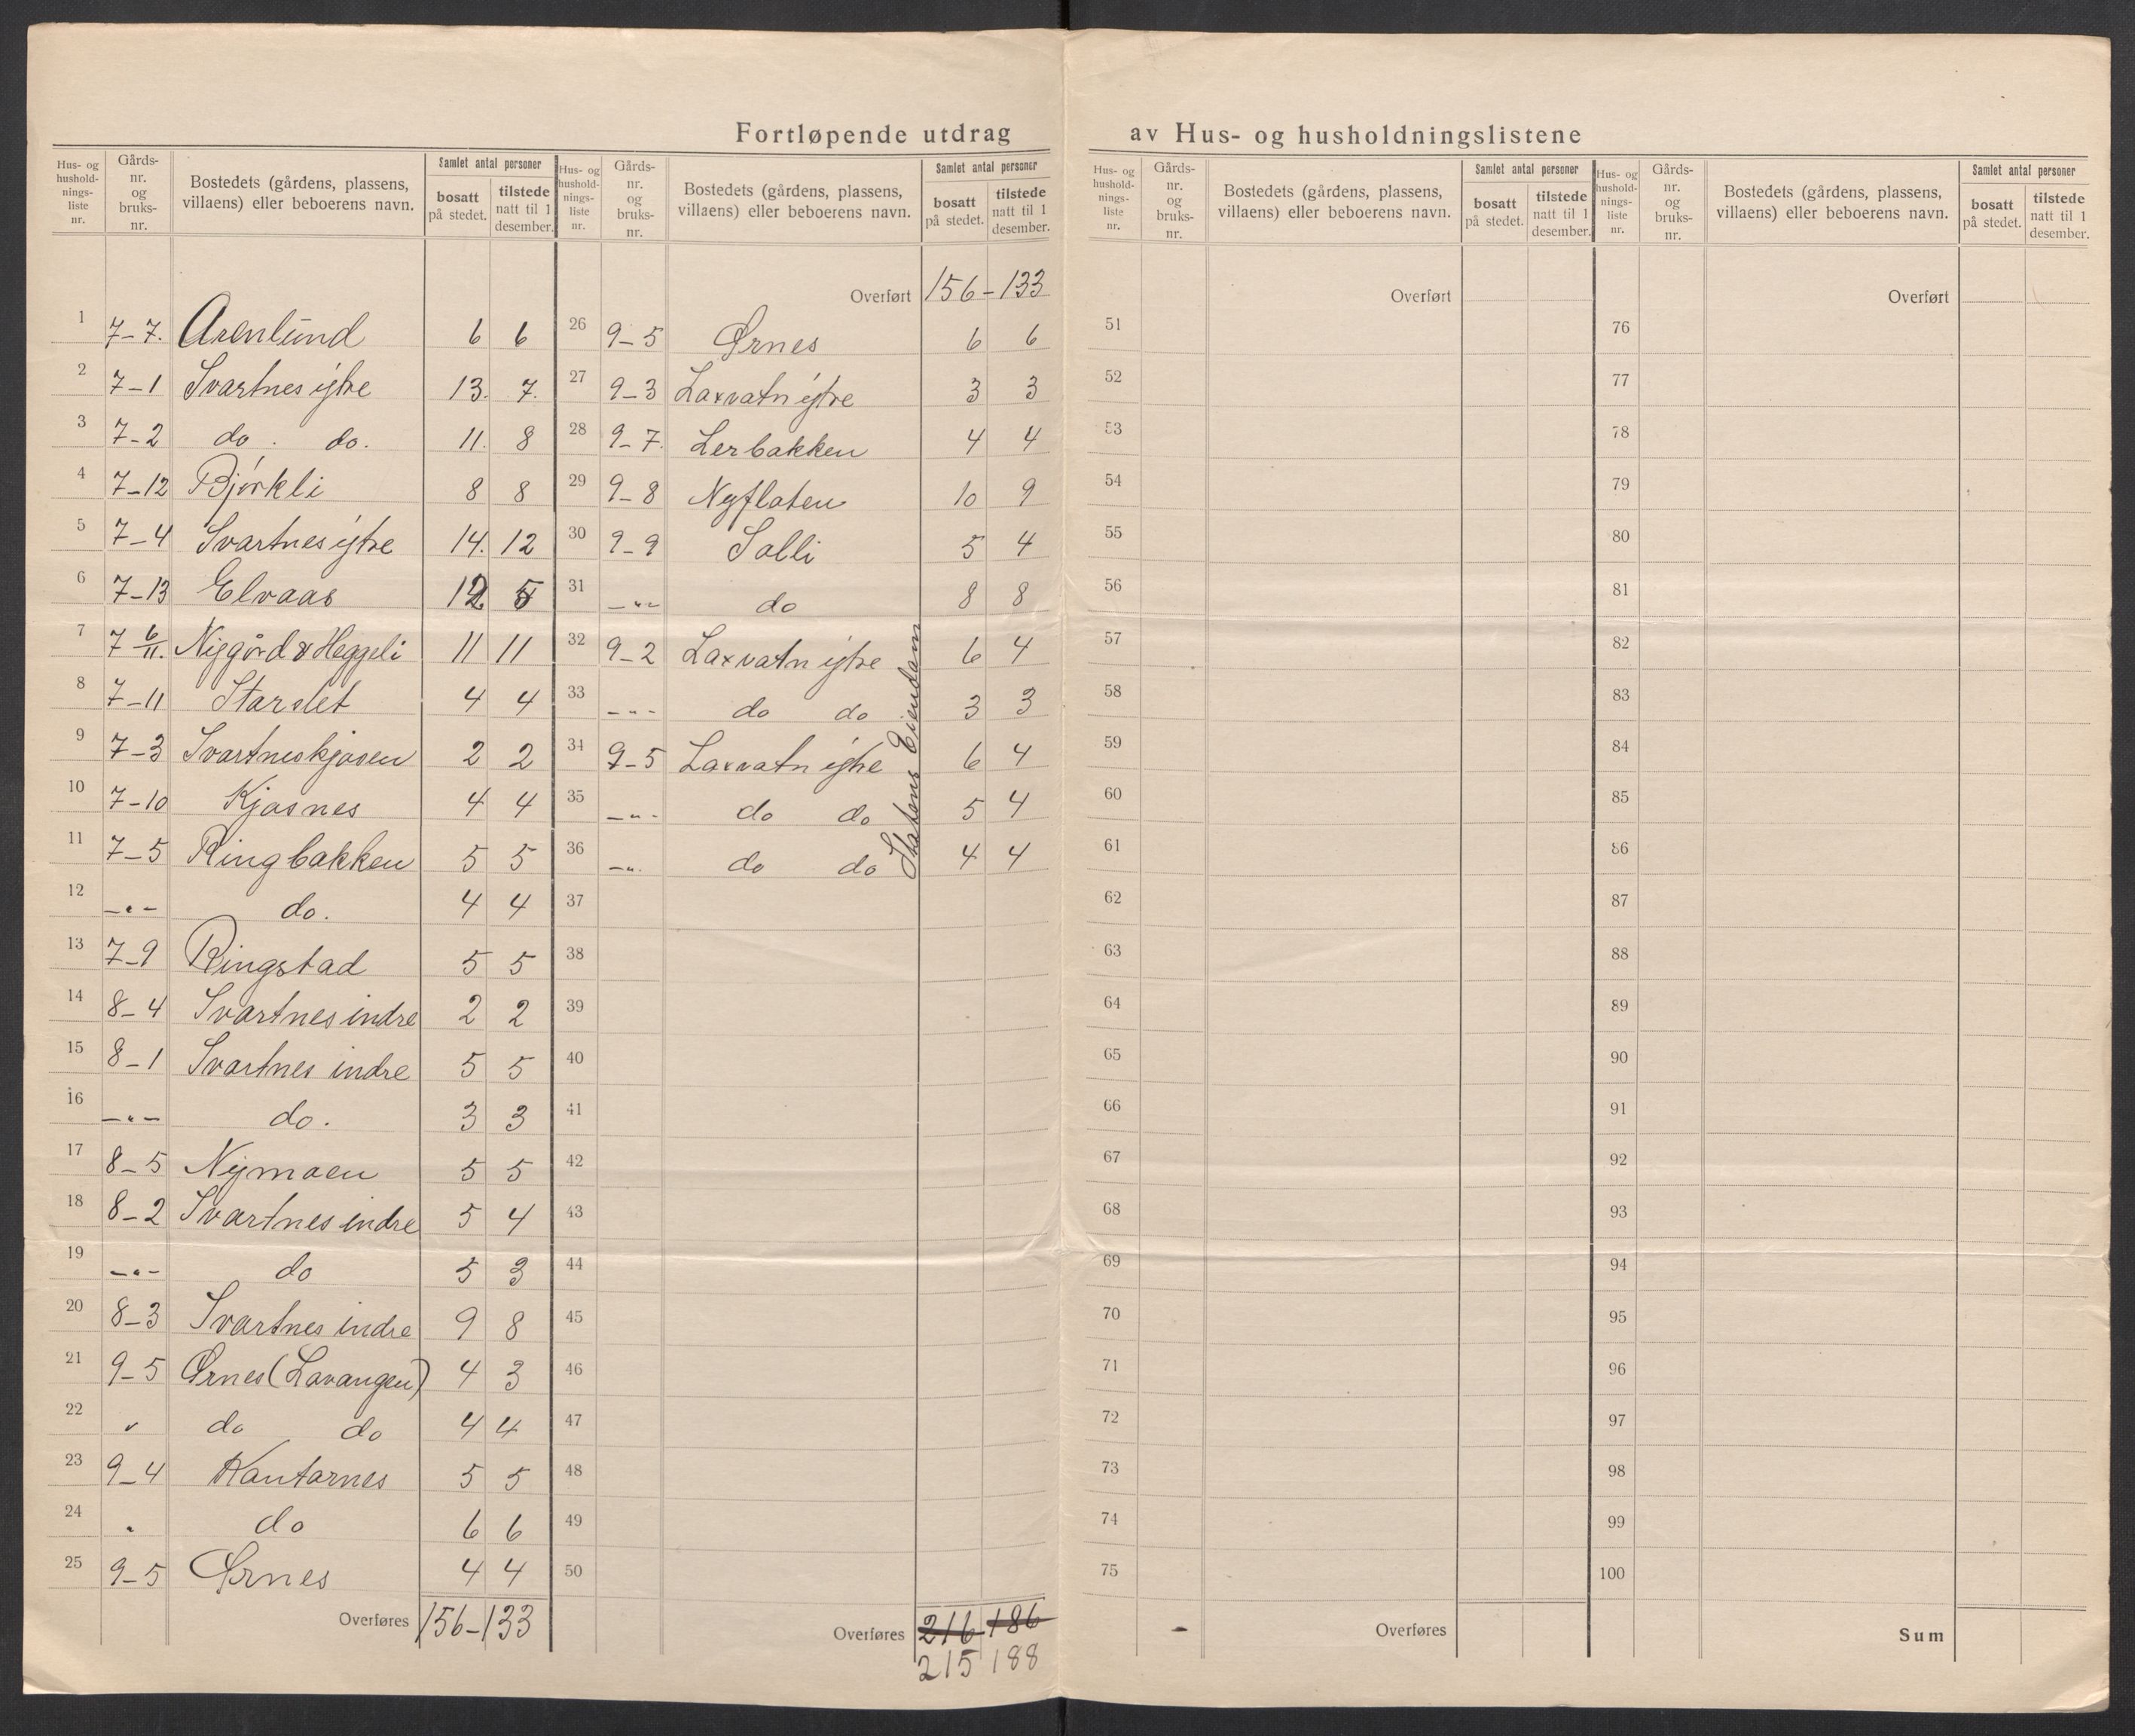 Fortløpende utdrag av Hus- og husholdningslistene
Hus- og hushold-nings-liste nr. | Gårds-nr. og bruks-nr. | Bostedets (gårdens, plassens, villaens) eller beboerens navn. | Samlet antal personer | bosatt på stedet. | tilstede natt til 1 desember.
1 7-7. Arenlund 6 6
2 7-1 Svartnes ytre 13. 7.
3 7-2 do. do. 11. 8
4 7-12 Bjørkli 8 8
5 7-4 Svartnes ytre 14. 12
6 7-13 Elvaas 12 5
7 7 6/11. Nygård & Heggeli 11 11
8 7-11 Starslet 4 4
9 7-3 Svartneskjosen 2 2
10 7-10 Kjosnes 4 4
11 7-5 Ringbakken 5 5
12 -"- do. 4 4
13 7-9 Ringstad 5 5
14 8-4 Svartnes indre 2 2
15 8-1 Svartnes indre 5 5
16 -"- do. 3 3
17 8-5 Nymoen 5 5
18 8-2 Svartnes indre 5 4
19 -"- do 5 3
20 8-3 Svartnes indre 9 8
21 9-5 Ørnes (Lavangen) 4 3
22 " do do 4 4
23 9-4 Kantornes 5 5
24 " do 6 6
25 9-5 Ørnes 4 4
Overføres 156-133
Hus- og hushold-nings-liste nr. | Gårds-nr. og bruks-nr. | Bostedets (gårdens, plassens, villaens) eller beboerens navn. | Samlet antal personer | bosatt på stedet. | tilstede natt til 1 desember.
Overført 156-133
26 9-5 Ørnes 6 6
27 9-3 Laxvatn ytre 3 3
28 9-7. Lerbakken 4 4
29 9-8 Nyflaten 10 9
30 9-9 Solli 5 4
31 -"- do 8 8
32 9-2 Laxvatn ytre 6 4
33 -"- do do 3 3
34 9-5 Laxvatn ytre 6 4
35 -"- do do 5 4
36 -"- do do 4 4
Statens Eiendom
37
38
39
40
41
42
43
44
45
46
47
48
49
50
Overføres 216 186
215 188
Hus- og hushold-nings-liste nr. | Gårds-nr. og bruks-nr. | Bostedets (gårdens, plassens, villaens) eller beboerens navn. | Samlet antal personer | bosatt på stedet. | tilstede natt til 1 desember.
Overført
51
52
53
54
55
56
57
58
59
60
61
62
63
64
65
66
67
68
69
70
71
72
73
74
75
Overføres
Hus- og hushold-nings-liste nr. | Gårds-nr. og bruks-nr. | Bostedets (gårdens, plassens, villaens) eller beboerens navn. | Samlet antal personer | bosatt på stedet. | tilstede natt til 1 desember.
Overført
76
77
78
79
80
81
82
83
84
85
86
87
88
89
90
91
92
93
94
95
96
97
98
99
100
Sum